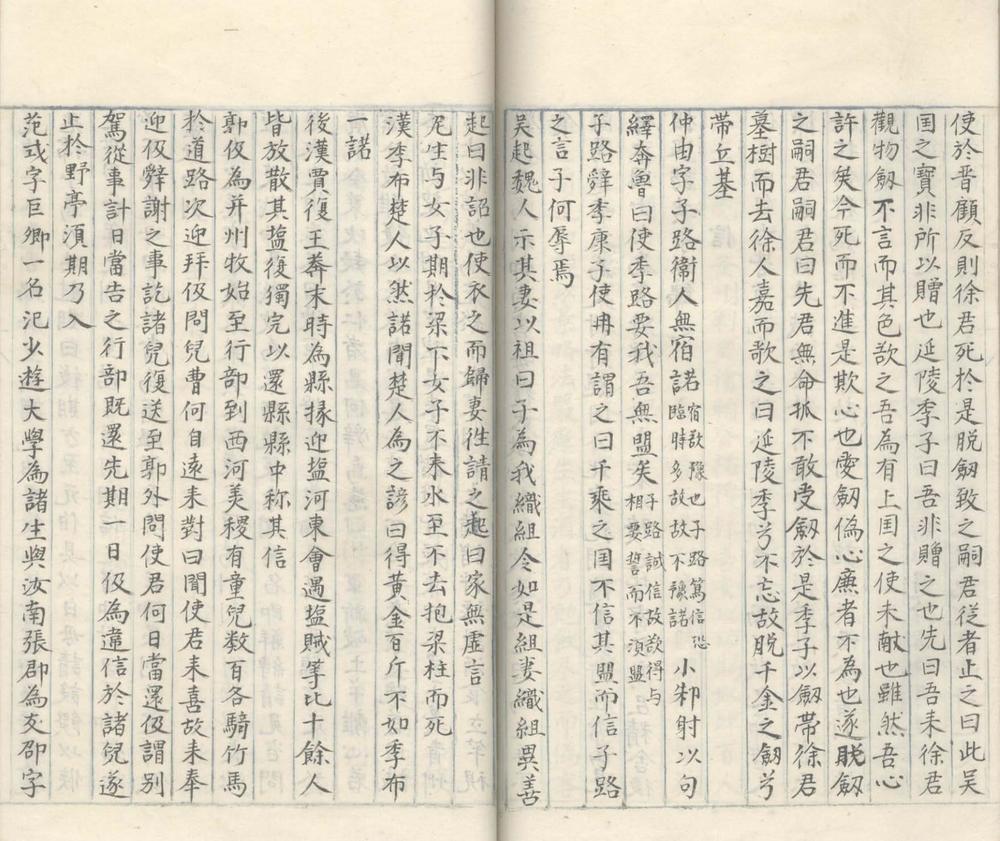 使於晋顧反則徐君死於是脱劔致之嗣君従者止之曰此吴
国之寶非所以贈也延陵季子曰吾非贈之也先曰吾来徐君
觀物劔不言而其色欲之吾為有上国之使未献也雖然吾心
許之矣今死而不進是欺心也愛劔偽心廉者不為也遂脱劔
之嗣君嗣君曰先君無命孤不敢受劔於是季子以劔帶徐君
墓樹而去徐人嘉而歌之曰延陵季兮不忘故脱千金之劔兮
帶丘墓
仲由字子路衞人無宿諾宿欲豫也子路篤信恐臨時多故故不豫諾小邾射以句
繹奔魯曰使季路要我吾無盟矣子路誠信故欲得与相要誓而不須盟
子路辝季康子使冉有謂之曰千乗之国不信其盟而信子路
之言子何辱焉
吴起魏人示其妻以祖曰子為我織組令如是組妻織組異善
起曰非詔也使衣之而歸妻徃請之起曰家無虚言
尾生与女子期於梁下女子不来水至不去抱梁柱而死
漢李布楚人以然諾聞楚人為之諺曰得黄金百斤不如李布
一諾
後漢賈復王莽末時為縣掾迎塩河東會遇塩賊等比十餘人
皆放散其塩復獨完以還縣縣中称其信
郭伋為并州牧始至行部到西河美稷有童兒数百各騎竹馬
於道路次迎拜伋問兒曹何自遠来對曰聞使君来喜故来奉
迎伋辝謝之事訖諸兒復送至郭外問使君何日當還伋謂别
駕従事計日當告之行部既還先期一日伋為違信於諸兒遂
止於野亭須期乃入
范式字巨卿一名汜少遊大學為諸生與汝南張邵為友邵字